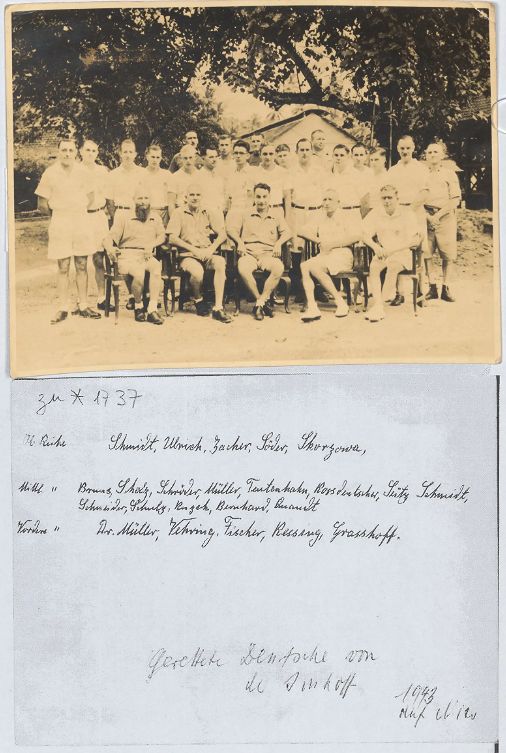 zu * 1737
Ob. Reihe Schmidt, Ulrich, Zacher, Söder, Skorzowa,
Mittl " Bruns, Scholz, Schröder, Müller, Tentenhahn, Seitz Schmidt,
Schneider, Schultz, Bernhard,
Vordere " Dr. Müller, Vehring, Fischer, Ressing, Grasshoff.
Gerettete Deutsche von
de Imhoff
1943
auf